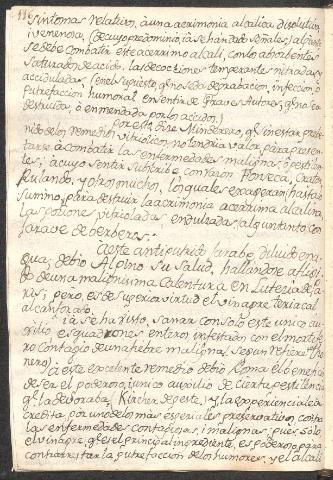 sintomas relativos, à una acrimonia alcalica, disolutiva,
i venenosa, (de cuyo predominio, ia se han dado señales,) al pun
se debe combatir este acerrimo alcali, con los absorbentes
saturados de acido. las decocciones temperantes nitradas, y
acciduladas, (en el supuesto, q no se da deprabacion, infeccion, o
putrefaccion humoral en sentir de Graves Autores, q no sea
destruida, ò enmendada por los acidos.)
Por esto dice Minderero, q si no estar preve
nido de los remedios vitriolicos, no tendria valor para presen
tarse à combatir las enfermedades malignas, ò pestilen
tes; à cuyo sentir subscribe con razon Fonseca, Craton,
Rulando, y otros muchos, los quales exageran hasta lo
sumo, para destruir la acrimonia acerrima alcalina
las pociones vitrioladas endulzadas, al gusto, con
Jarave de berberos.
A este antiputrido Jarabe, diluido en a
gua, debio Alpino su Salud, hallandose afligi
do de una malignisima Calentura en Lutecia de Pa
ris; pero, es de superior virtud el vinagre teriacal
alcanforado.
ia se ha visto, sanar con solo este unico au
xilio esquadrones enteros infestados con el mortife
ro Contagio de una fiebre maligna, segun refiere
nero)
A este excelente remedio debio Roma el beneficio
de ser el poderoso, i unico auxilio de cierta pestilencia
q la devoraba, (Kircher de peste,) y la experiencia le a
credita, por uno de los mas especiales preservativos, contra
las enfermedades contagiosas, i malignas; pues, solo
el vinagre, q es el principal ingrediente, es poderoso para
contrarrestar la putrefaccion de los humores, y el alcali